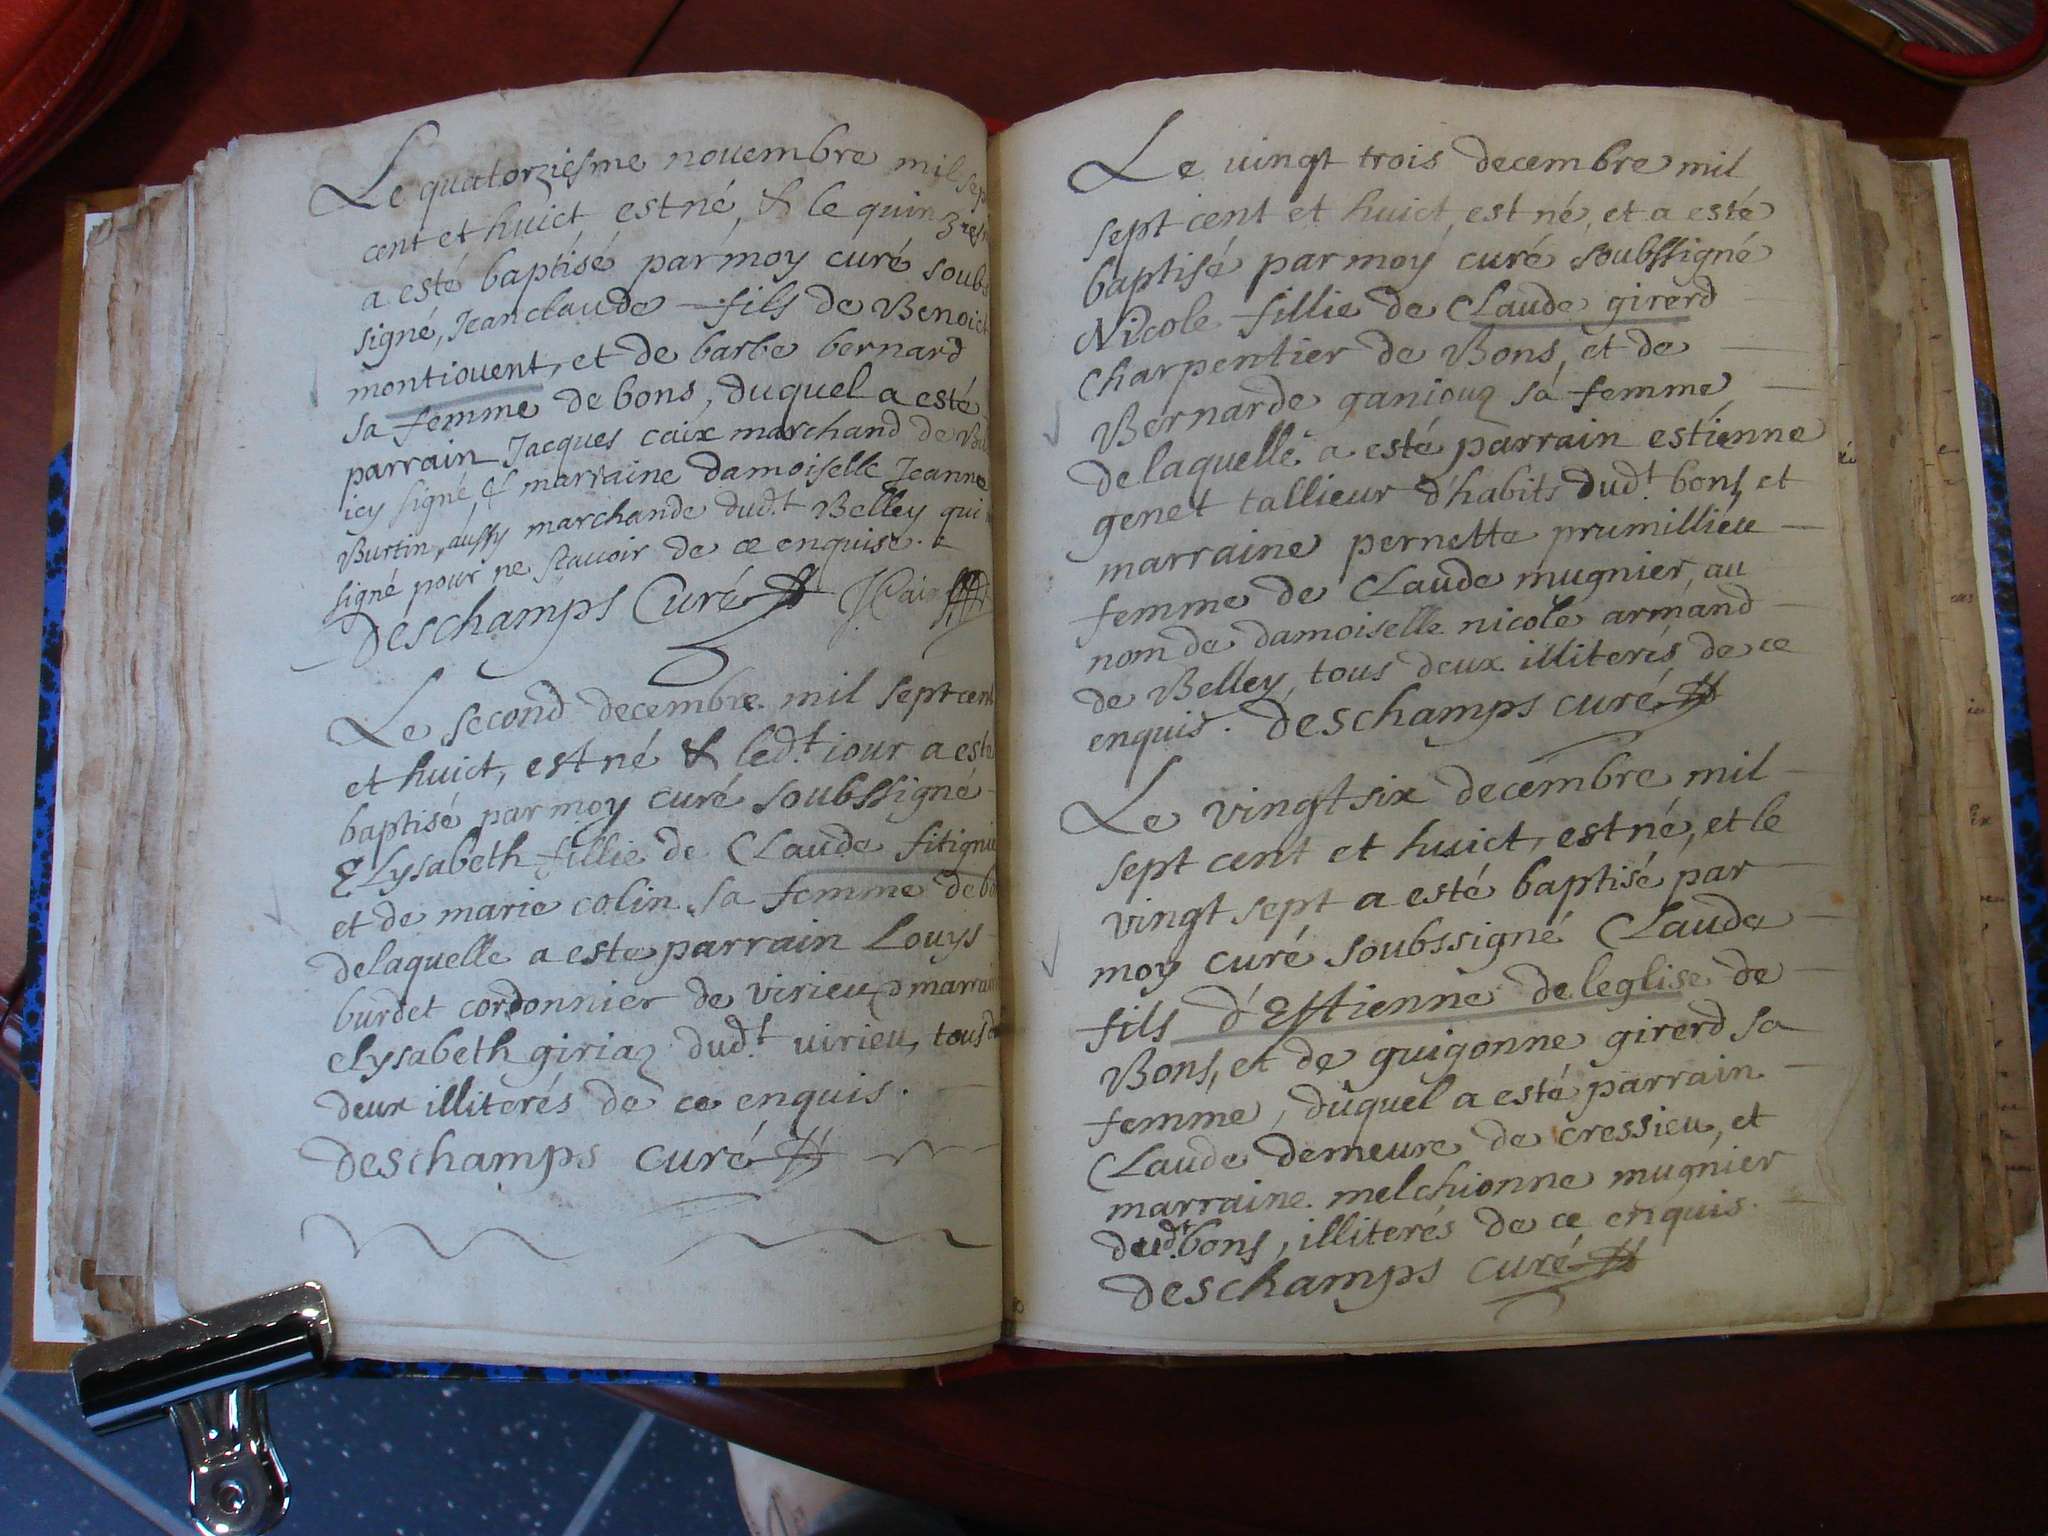 Le quatorziesme nouembre mil sep
cent et huict, est né, & le quinzies
a esté baptisé par moy curé soubs
signé, Jeanclaude fils de Benoict
montiouent, et de barbe bernard
sa femme de bons, duquel a esté
parrain Jacques caix marchand de
icy signé & marraine damoiselle Jeanne
Burtin, aussy marchande dud.t Belley qui
signé pour ne scauoir de ce enquise.
Deschamps Curé J Caix
Le second decembre mil sept cent
et huict, est né & led.t iour a esté
baptisé par moy curé soubssigné
Elysabeth fillie de Claude fitignie
et de marie colin sa femme de bo
delaquelle a esté parrain Louys
burdet cordonnier de virieu, & marraine
elysabeth giriaz dud.t virieu, tous
deux illiterés de ce enquis.
deschamps curé
Le vingt trois decembre mil
sept cent et huict, est né, et a esté
baptisé par moy curé soubssigné
Nicole fillie de Claude girerd
Charpentier de Bons, et de
Bernarde ganiouz sa femme
delaquelle a esté parrain estienne
genet tallieur d'habits dud.t bons, et
marraine pernette prumillieu
femme de Claude mugnier, au
nom de damoiselle nicole armand
de Belley, tous deux illiterés de ce
enquis. deschamps curé
Le vingt six decembre mil
sept cent et huict, est né, et le
vingt sept a esté baptisé par
moy curé soubssigné Claude
fils d'Estienne de leglise de
Bons, et de guigonne girerd sa
femme, duquel a esté parrain
Claude demeure de cressieu, et
marraine melchionne mugnier
dud.t bons, illiterés de ce enquis.
deschamps curé